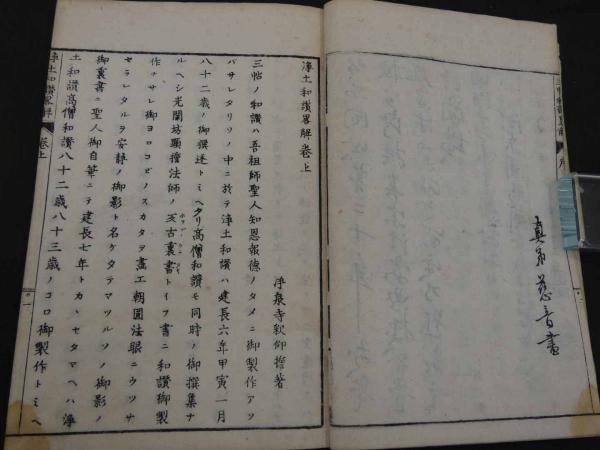 真弟慈音書
浄土和讃畧解 巻上
浄泉寺釈仰誓著
三帖ノ和讃ハ吾祖師聖人知恩報徳ノタメニ御製作アソ
バサレタリソノ中ニ於テ浄土和讃ハ建長六年甲寅一月
八十二歳ノ御撰述トミヘタリ高僧和讃モ同時ノ御撰集ナ
ルヘシ光闡坊顕檀法師ノ古裏書トイフ書ニ和讃御製
作ナサレ御ヨロコビノスカタヲ畫工朝圓法眼ニウツサ
セラレタルヲ安静ノ御影ト名ケタテマツルソノ御影ノ
御裏書ニ聖人御自筆ニテ建長七年トカヽセタマヘハ浄
土和讃高僧和讃八十二歳八十三歳ノコロ御製作トミヘ
浄土和讃畧解 巻上